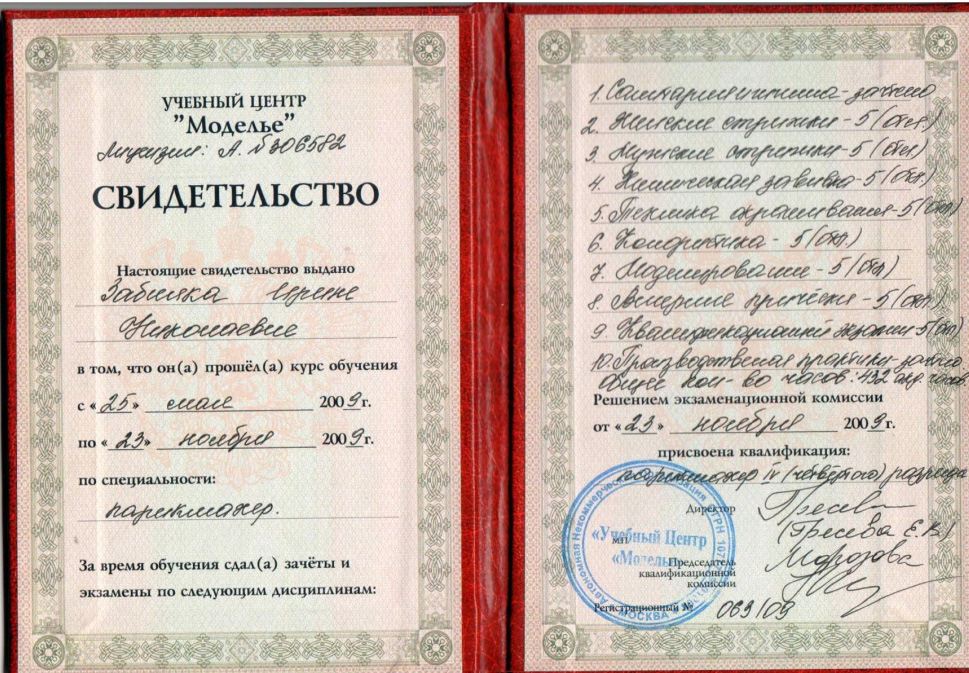 УЧЕБНЫЙ ЦЕНТР
"Моделье"
Лицензия: А. №306582
СВИДЕТЕЛЬСТВО
Настоящие свидетельство выдано
Забияка Ирине
Николаевне
в том, что он(а) прошёл(а) курс обучения
с «25» мая 2009г.
по «23» ноября 2009г.
по специальности:
парикмахер.
За время обучения сдал(а) зачёты и
экзамены по следующим дисциплинам:
1. Санитария и гигиена - зачтено
2. Женские стрижки - 5 (отл.)
3. Мужские стрижки - 5 (отл)
4. Химическая завивка - 5 (отл.)
5. Техника окрашивания - 5 (отл)
6. Колористика - 5 (отл.)
7. Моделирование - 5 (отл)
8. Вечерние причёски - 5 (отл)
9. Квалификационный экзамен 5 (отл)
10. Производственная практика - зачтено
Общее кол-во часов: 432 акд. часов
Решением экзаменационной комиссии
от «23» ноября 2009г.
присвоена квалификация:
парикмахер IV (четвёртого) разряда
Директор
(Гресева Е.К.)
Автономная Некоммерческая Организация
ОГРН
«Учебный Центр
«Моделье»
МОСКВА
МП
Председатель
квалификационной
комиссии
Морозова
Регистрационный № 063/09